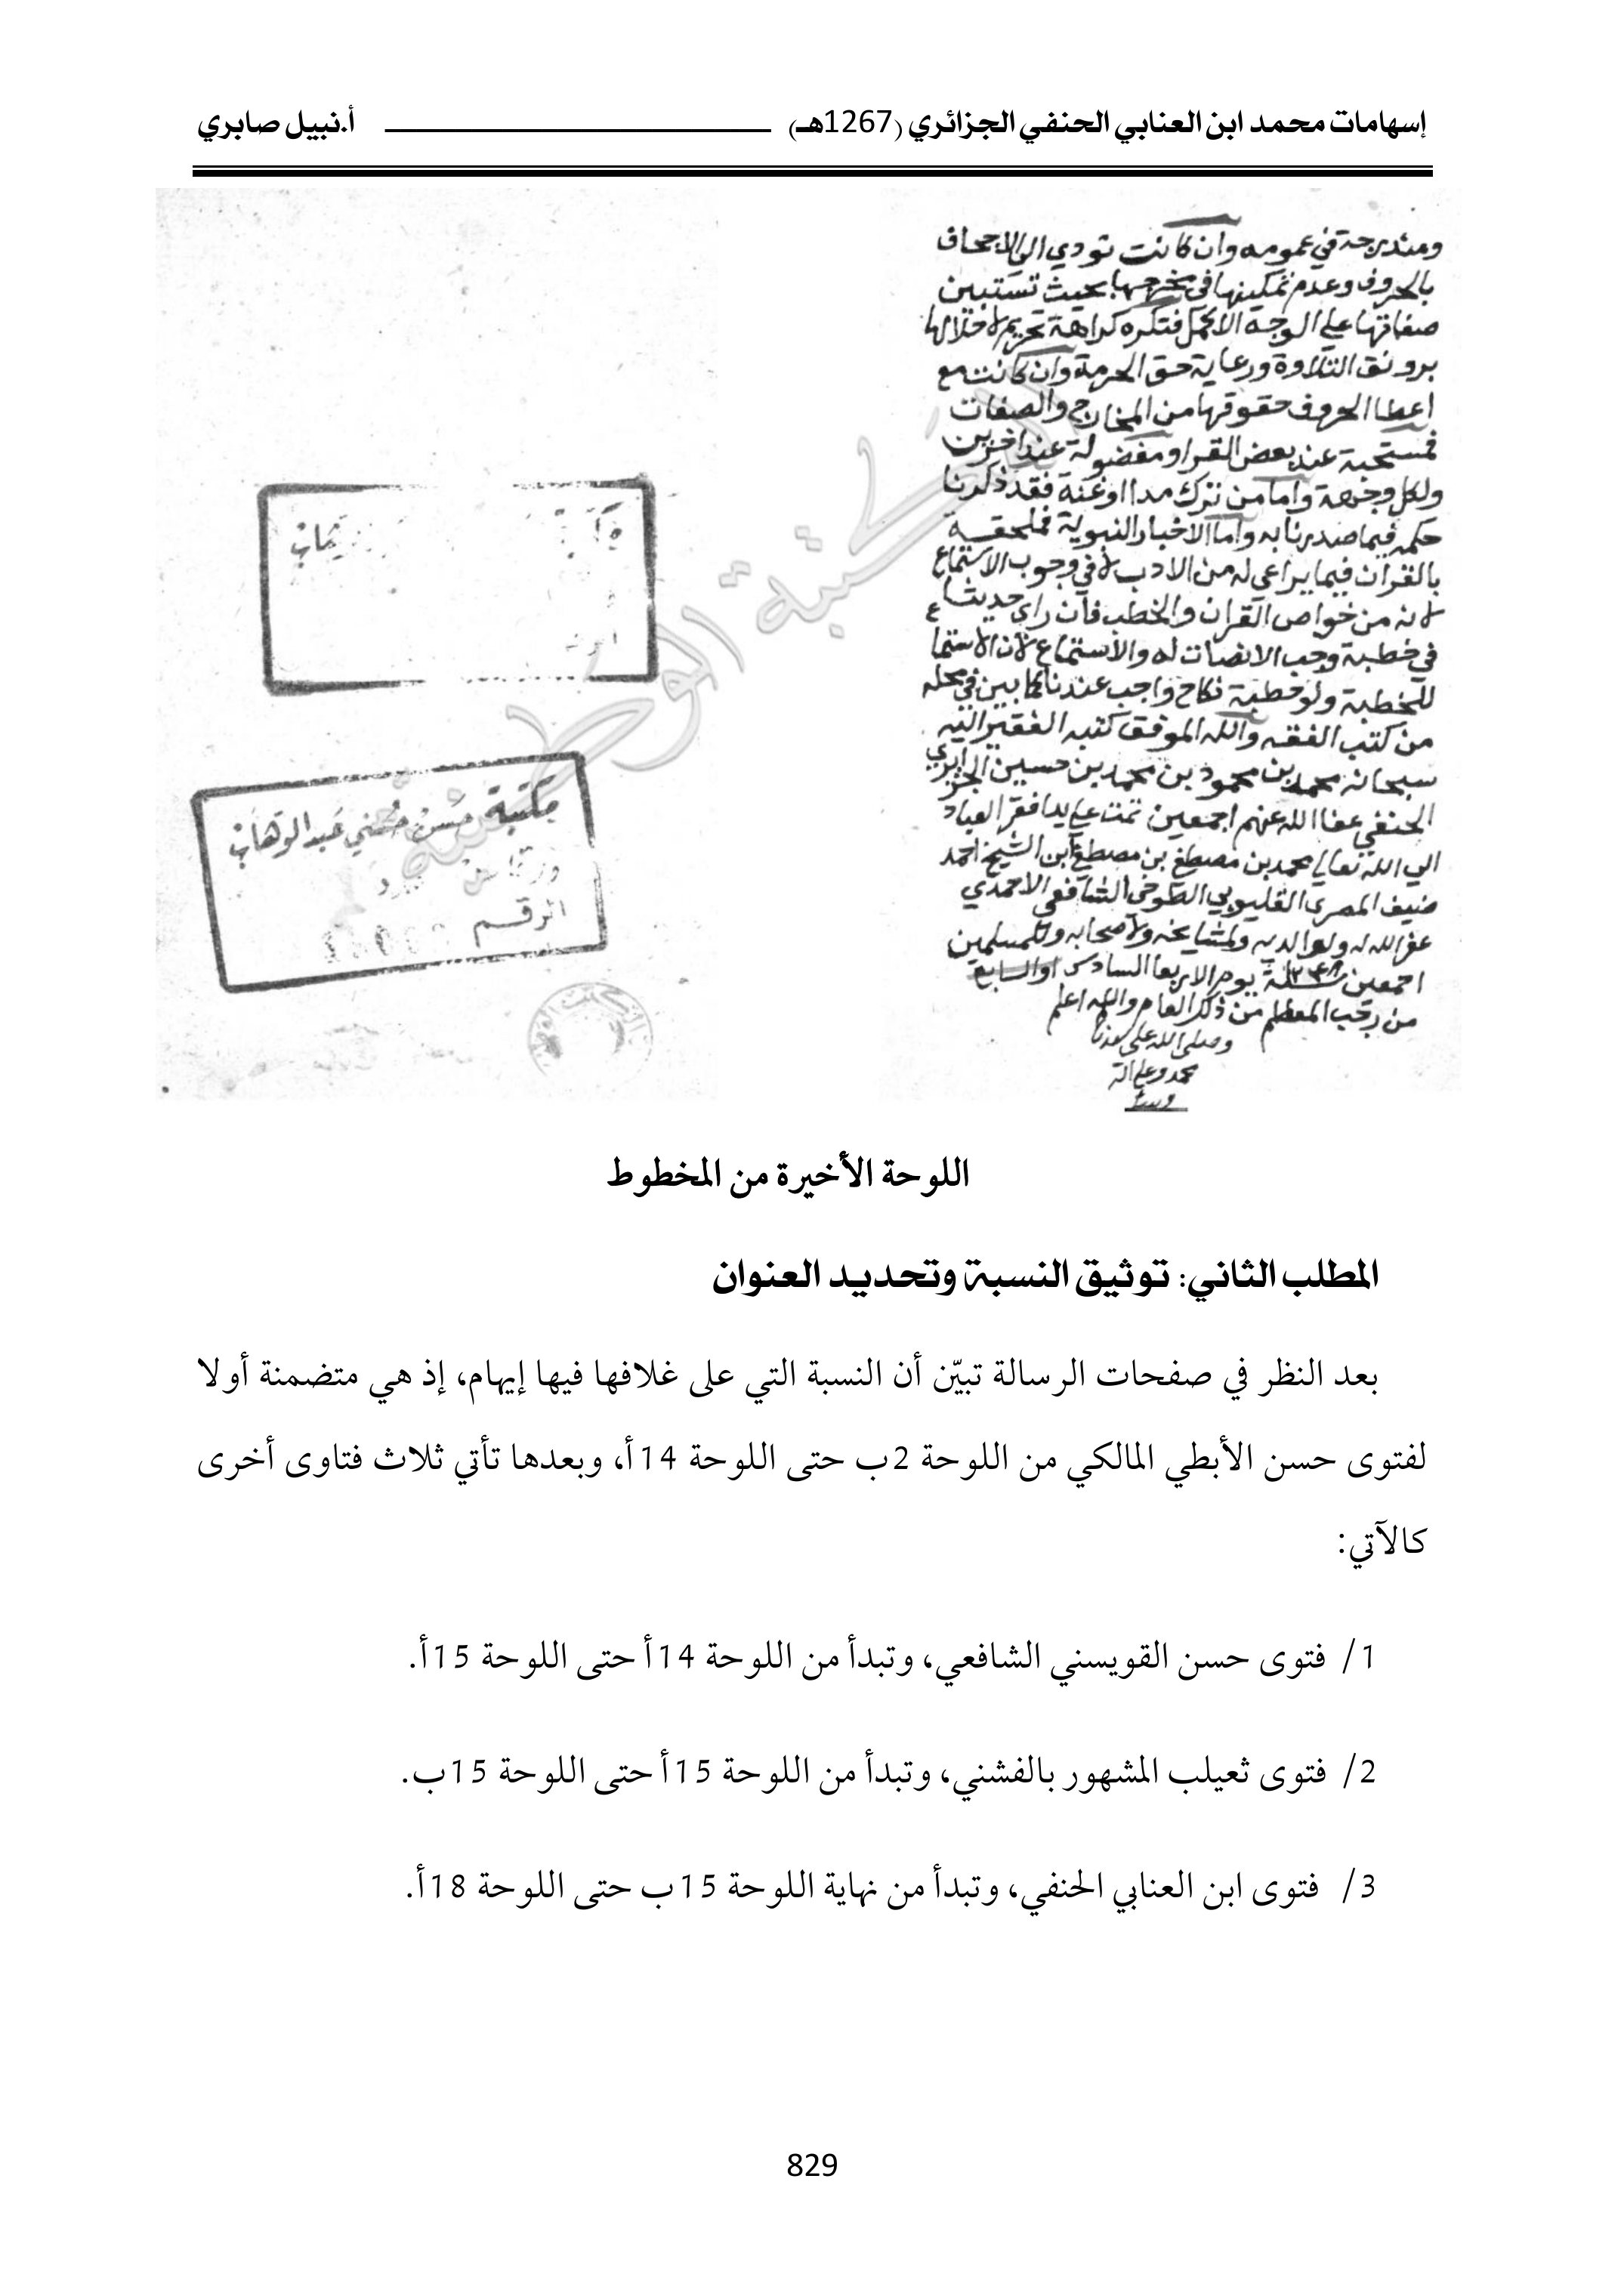 إسهامات محمد ابن العنابي الحنفي الجزائري (1267هـ) أ.نبيل صابري
ومندرجة في عمومه وان كانت تودي الى الاجحاف
بالحروف وعدم تمكينها في مخرجها بحيث تستبين
صفاتها على الوجه الاكمل فتكره كراهة تحريم لاخلالها
برونق التلاوة ورعاية حق الحرمة وان كانت مع
اعطا الحروف حقوقها من المخارج والصفات
فمستحبة عند بعض القرا ومفضولة عند اخرين
ولكل وجهة واما من ترك مدا او غنة فقد ذكرنا
حكمه فيما صدرنا به واما الاخبار النبوية فملحقة
بالقران فيما يراعى له من الادب لا في وجوب الاستماع
لانه من خواص القران والخطب فان راى حديثا
في خطبة وجب الانصات له والاستماع لان الاستماع
للخطبة ولو خطبة نكاح واجب عندنا كما بين في محله
من كتب الفقه والله الموفق كتبه الفقير اليه
سبحانه محمد بن محمود بن محمد بن حسين الجزايري
الحنفي عفا الله عنهم اجمعين تمت على يد افقر العباد
الى الله تعالى محمد بن مصطفى بن مصطفى ابن الشيخ احمد
ضيف المصرى القليوبي الطوخى الشافعى الاحمدي
غفر الله له ولوالديه ولمشايخه ولاصحابه وللمسلمين
اجمعين سنة يوم الاربعا السادس او السابع
من رجب المعظم من ذلك العام والله اعلم
وصلى الله على سيدنا
محمد وعلى اله
وسلم
مكتبة حسن حسني عبد الوهاب
الرقم
المكتبة الوطنية
اللوحة الأخيرة من المخطوط
المطلب الثاني: توثيق النسبة وتحديد العنوان
بعد النظر في صفحات الرسالة تبيّن أن النسبة التي على غلافها فيها إيهام، إذ هي متضمنة أولا
لفتوى حسن الأبطي المالكي من اللوحة 2ب حتى اللوحة 14أ، وبعدها تأتي ثلاث فتاوى أخرى
كالآتي:
1/ فتوى حسن القويسني الشافعي، وتبدأ من اللوحة 14أ حتى اللوحة 15أ.
2/ فتوى ثعيلب المشهور بالفشني، وتبدأ من اللوحة 15أ حتى اللوحة 15ب.
3/ فتوى ابن العنابي الحنفي، وتبدأ من نهاية اللوحة 15ب حتى اللوحة 18أ.
829